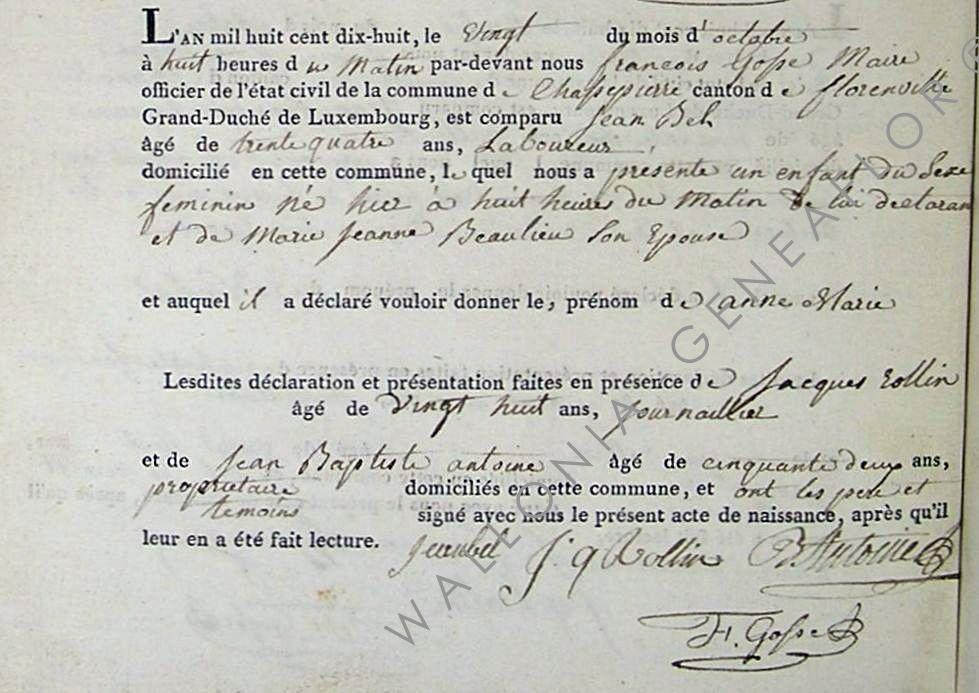 L'AN mil huit cent dix-huit, le Vingt du mois d'octobre
à huit heures du Matin par-devant nous francois Gosse Maire
officier de l'état civil de la commune de Chassepierre canton de florenville
Grand-Duché de Luxembourg, est comparu Jean Bel
âgé de trente quatre ans, Laboureur,
domicilié en cette commune, le quel nous a présenté un enfant du Sexe
feminin né hier à huit heures du Matin de lui declaran
et de Marie Jeanne Beaulieu Son Epouse
et auquel il a déclaré vouloir donner les prénom de anne Marie
Lesdites déclaration et présentation faites en présence de Jacques Rollin
âgé de Vingt huit ans, journaillier
et de Jean Baptiste antoine âgé de cinquante deux ans,
propriétaire domiciliés en cette commune, et ont les pere et
temoins signé avec nous le présent acte de naissance, après qu'il
leur en a été fait lecture. jeanbel J. q Rollin B Antoine
F. Gosse
WALLONIA GENEALOR ©